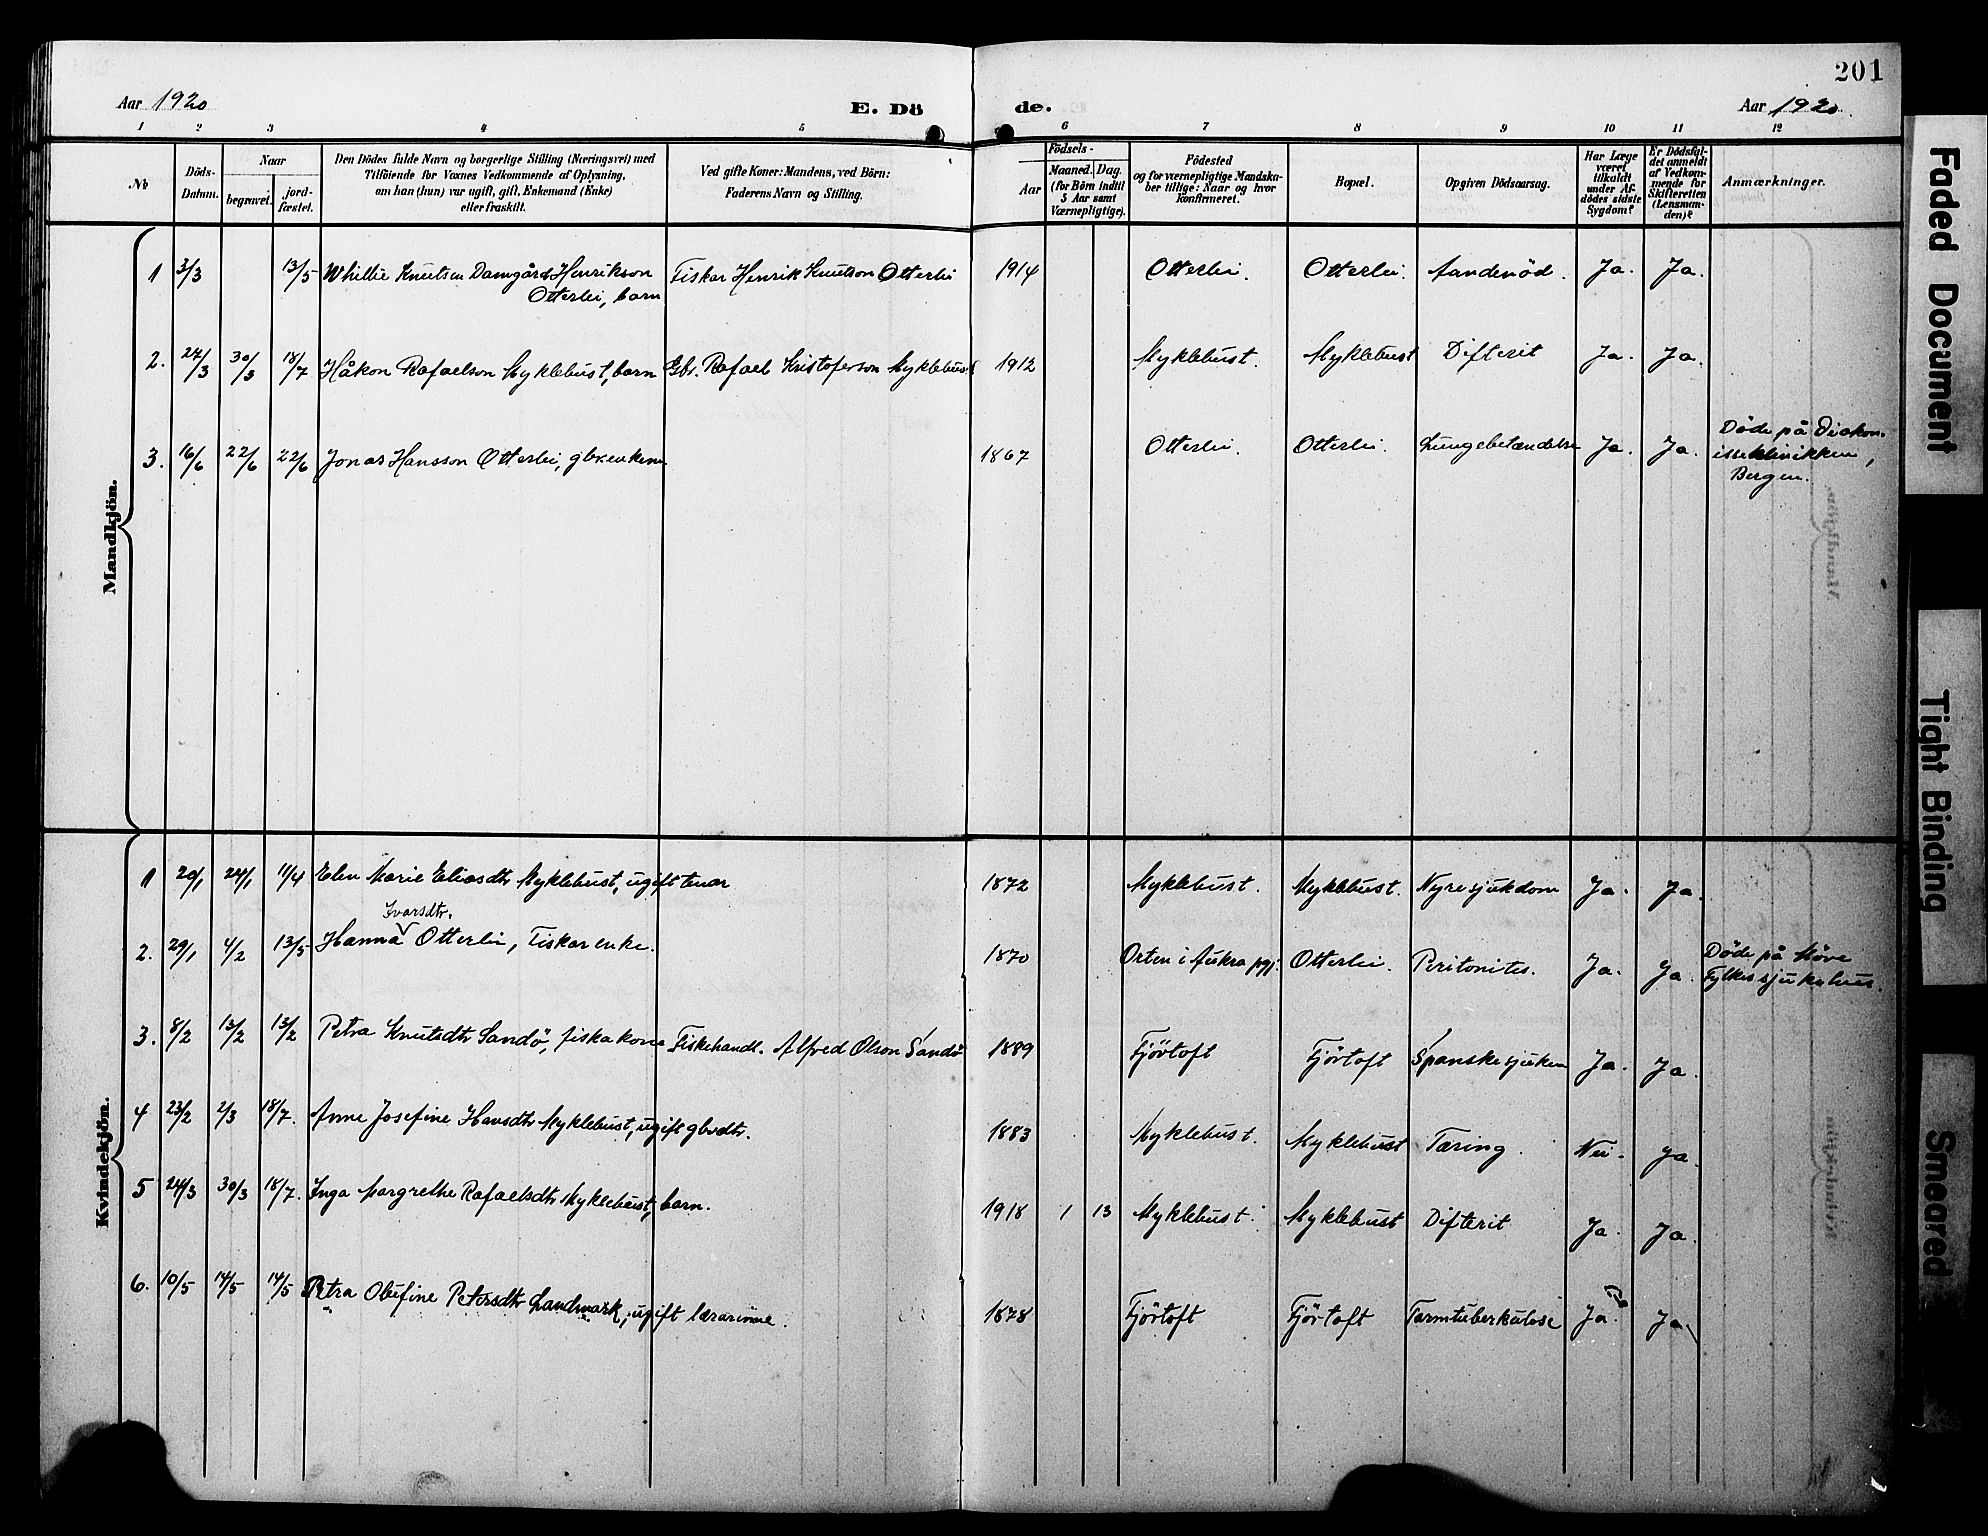 201
Aar 1920 E. Dö de. Aar 1920.
1 2 3 4 5 6 7 8 9 10 11 12
No
Döds-Datum.
Naar
begravet.
jordfæstet.
Den Dödes fulde Navn og borgerlige Stilling (Næringsvei) med
Tilföiende for Voxnes Vedkommende af Oplysning,
om han (hun) var ugift, gift, Enkemand (Enke)
eller fraskilt.
Ved gifte Koner: Mandens, ved Börn:
Faderens Navn og Stilling.
Födsels-
Aar
Maaned. Dag.
(for Börn indtil
5 Aar samt
Værnepligtige).
Födested
og for værnepligtige Mandska-
ber tillige: Naar og hvor
konfirmeret.
Bopæl.
Opgiven Dödsaarsag.
Har Læge
været
tilkaldt
under Af-
dödes sidste
Sygdom?
Er Dödsfal-
det anmeldt
af Vedkom-
mende for
Skifteretten
(Lensman-
den)?
Anmærkninger.
Mandkjön.
1 3/3 13/5 Whillie Knutsen Damgård Henrikson Fiskar Henrik Knutson Otterlei 1914 Otterlei. Otterlei. Aandenöd. Ja. Ja.
Otterlei, barn
2. 24/3 30/3 18/7 Håkon Rafaelson Myklebust, barn Gbr. Rafael Kristoferson Myklebust 1912 Myklebust. Myklebust Difterit Ja. Ja.
3. 16/6 22/6 22/6 Jonas Hansson Otterlei, 1867 Otterlei. Otterlei. Lungebetændelse Ja. Ja. Döde på Diakon-
isseklinikken,
Bergen.
Kvindekjön.
1 20/1 24/1 11/4 Elen Marie Eliasdtr Myklebust, ugift tenar 1872 Myklebust. Myklebust. Nyresjukdom Ja. Ja.
Ivarsdtr.
2. 29/1 4/2 13/5 Hanna Otterlei, Fiskarenke. 1870 Orten i Aukra pgj. Otterlei. Peritonites. Ja. Ja. Döde på Möre
Fylkessjukehus.
3. 8/2 13/2 13/2 Petra Knutsdtr Sandö, fiskakone Fiskehandl. Alfred Olson Sandö 1889 Fjörtoft Fjörtoft Spanskesjuken Ja. Ja.
4 23/2 2/3 18/7. Anne Josefine Hansdtr Myklebust, ugift gbrdtr. 1883 Myklebust. Myklebust Tæring. Nei. Ja.
5 24/3 30/3 18/7. Inga Margrethe Rafaelsdtr Myklebust, barn. 1918 1 13 Myklebust. Myklebust Difterit Ja. Ja.
6. 10/5 14/5 14/5 Petra Olufine Petersdtr Landmark, ugift lærarinne. 1878 Fjörtoft Fjörtoft Tarmtuberkulose Ja. Ja.
Faded Document
Tight Binding
Smeared